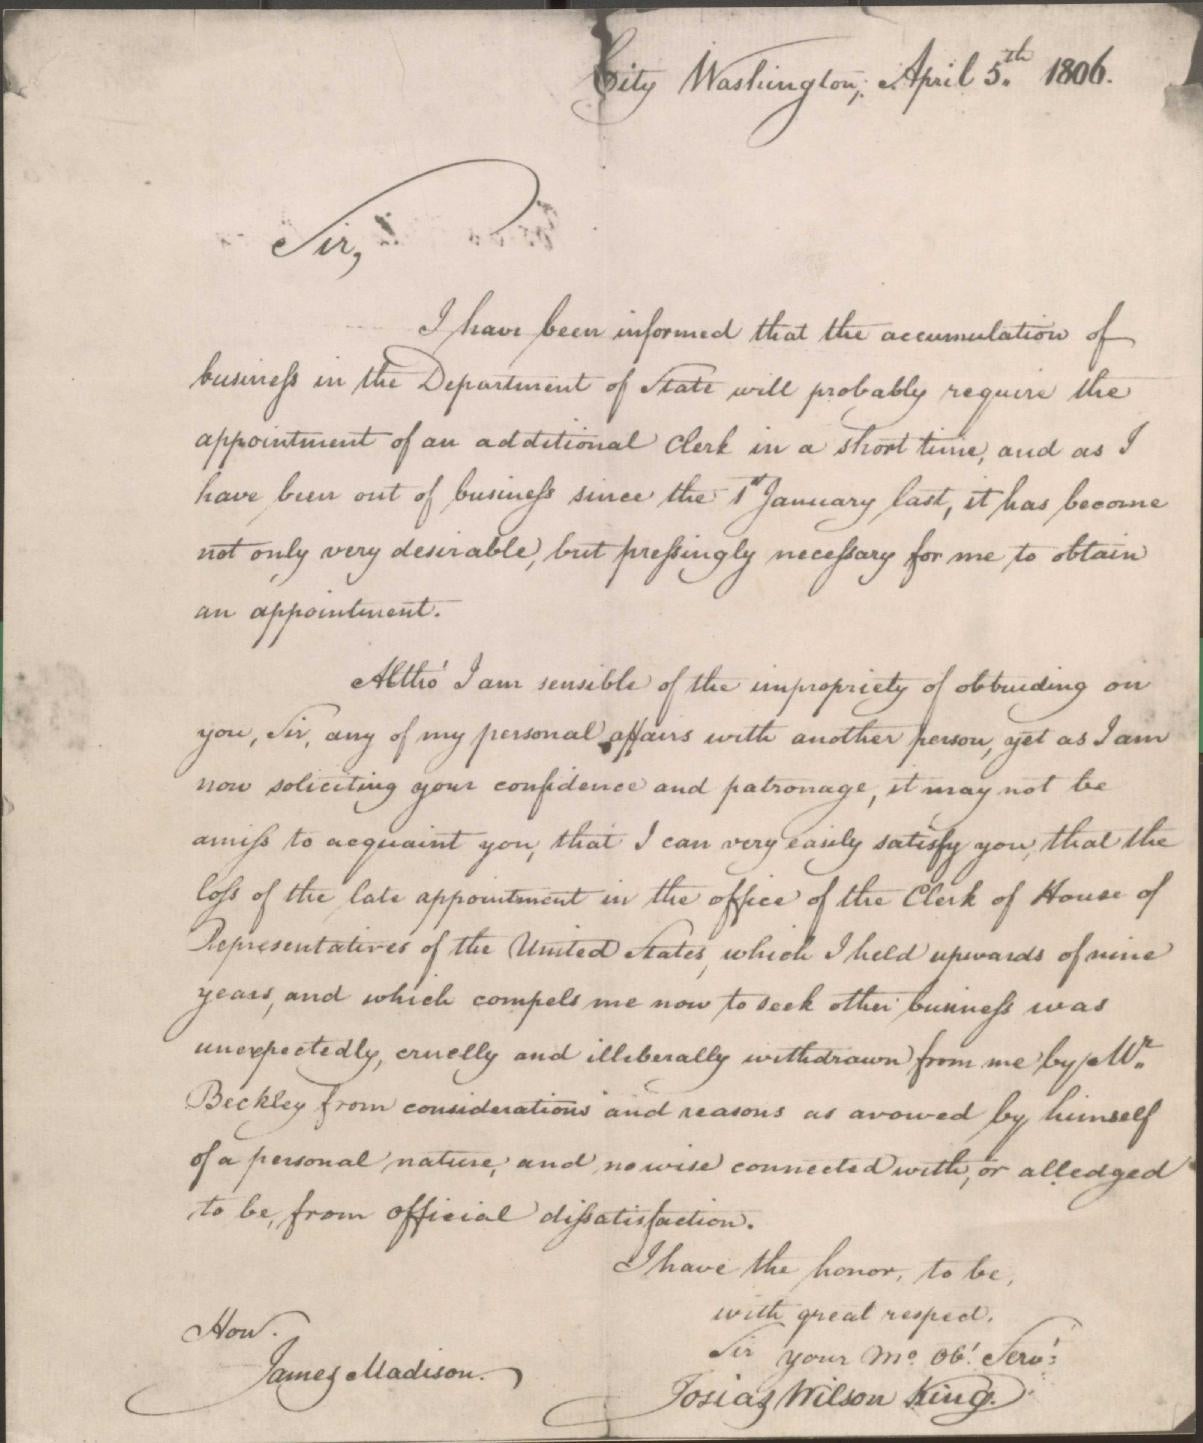 City Washington, April 5.th 1806.
Sir,
I have been informed that the accumulation of
business in the Department of State will probably require the
appointment of an additional Clerk in a short time, and as I
have been out of business since the 1st January last, it has become
not only very desirable, but pressingly necessary for me to obtain
an appointment.
Altho' I am sensible of the impropriety of obtruding on
you, Sir, any of my personal affairs with another person, yet as I am
now soliciting your confidence and patronage, it may not be
amiss to acquaint you, that I can very easily satisfy you, that the
loss of the late appointment in the office of the Clerk of House of
Representatives of the United States, which I held upwards of nine
years, and which compels me now to seek other business was
unexpectedly, cruelly and illiberally withdrawn from me by Mr.
Beckley from considerations and reasons as avowed by himself
of a personal nature, and no wise connected with, or alledged
to be, from official dissatisfaction.
I have the honor, to be,
with great respect.
Sir your Mo. Ob! Serv!
Josias Wilson King.
Hon.
James Madison.